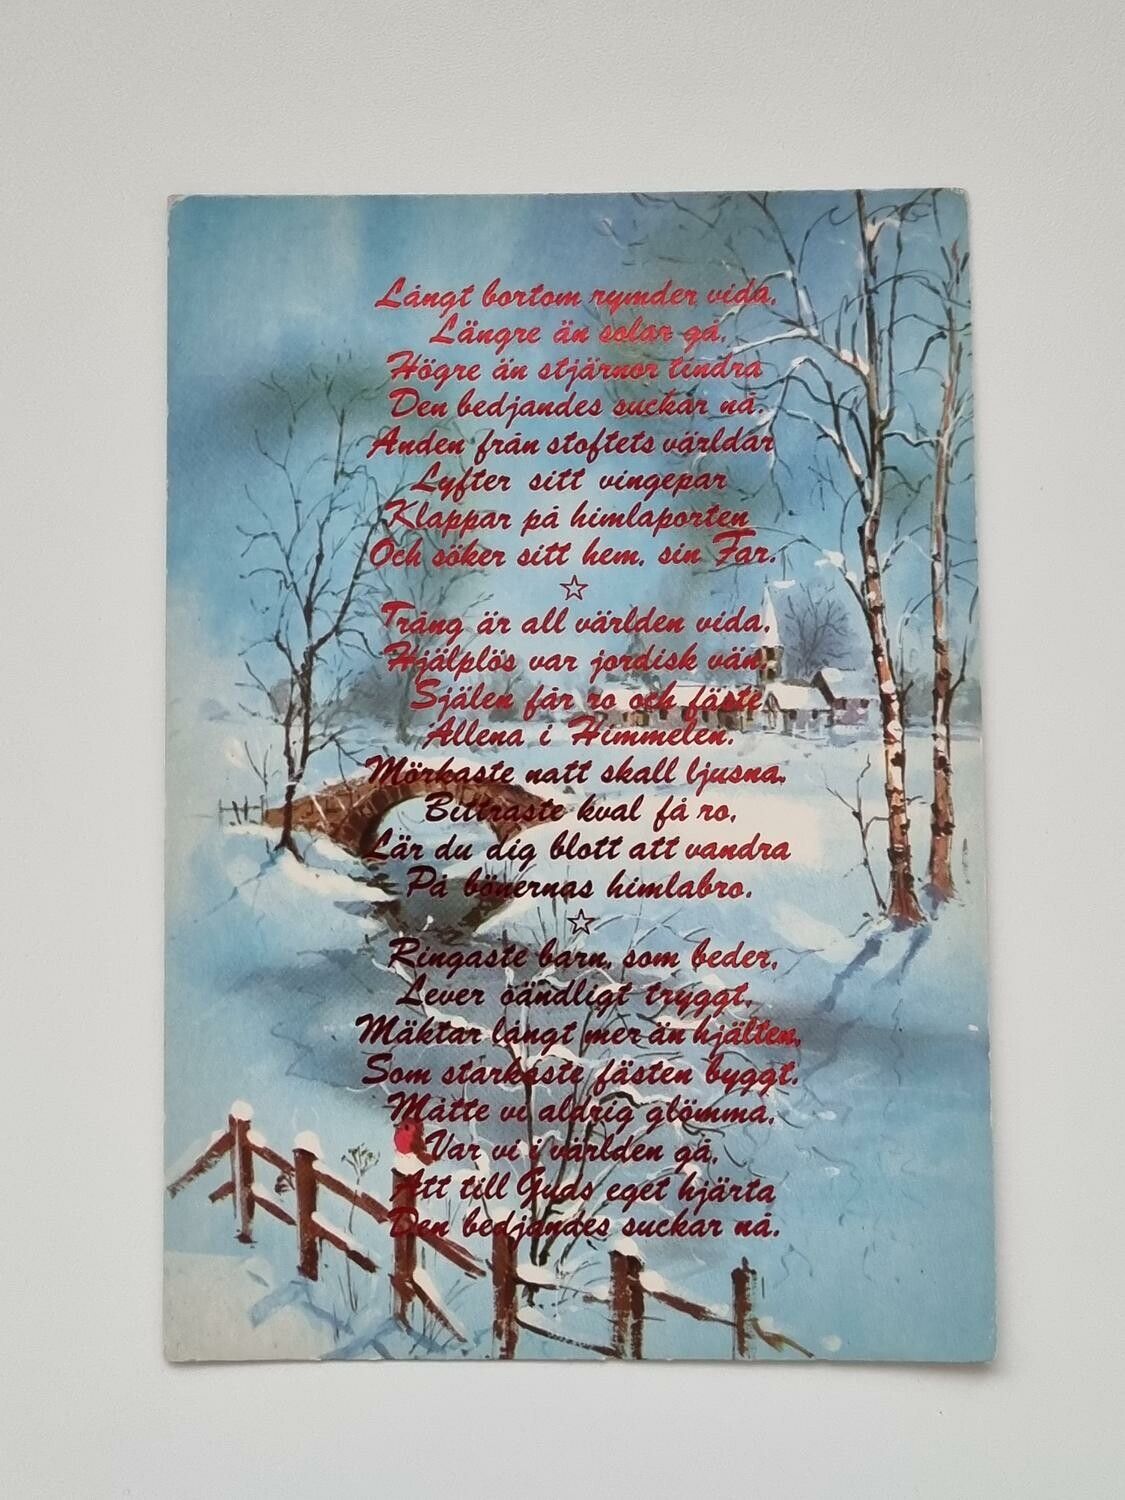 Långt bortom rymder vida,
Längre än solar gå,
Högre än stjärnor tindra
Den bedjandes suckar nå.
Anden från stoftets världar
Lyfter sitt vingepar
Klappar på himlaporten
Och söker sitt hem, sin Far.
Trång är all världen vida,
Hjälplös var jordisk vän,
Själen får ro och fäste
Allena i Himmelen.
Mörkaste natt skall ljusna,
Bittraste kval få ro,
Lär du dig blott att vandra
På bönernas himlabro.
Ringaste barn, som beder,
Lever oändligt tryggt,
Mäktar långt mer än hjälten,
Som starkaste fästen byggt.
Måtte vi aldrig glömma,
Var vi i världen gå,
Att till Guds eget hjärta
Den bedjandes suckar nå.